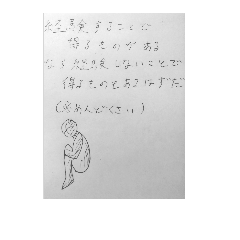 経験することで
得るものがある
なら経験しないことで
得るものもあるはずだ
(※めんどくさい)